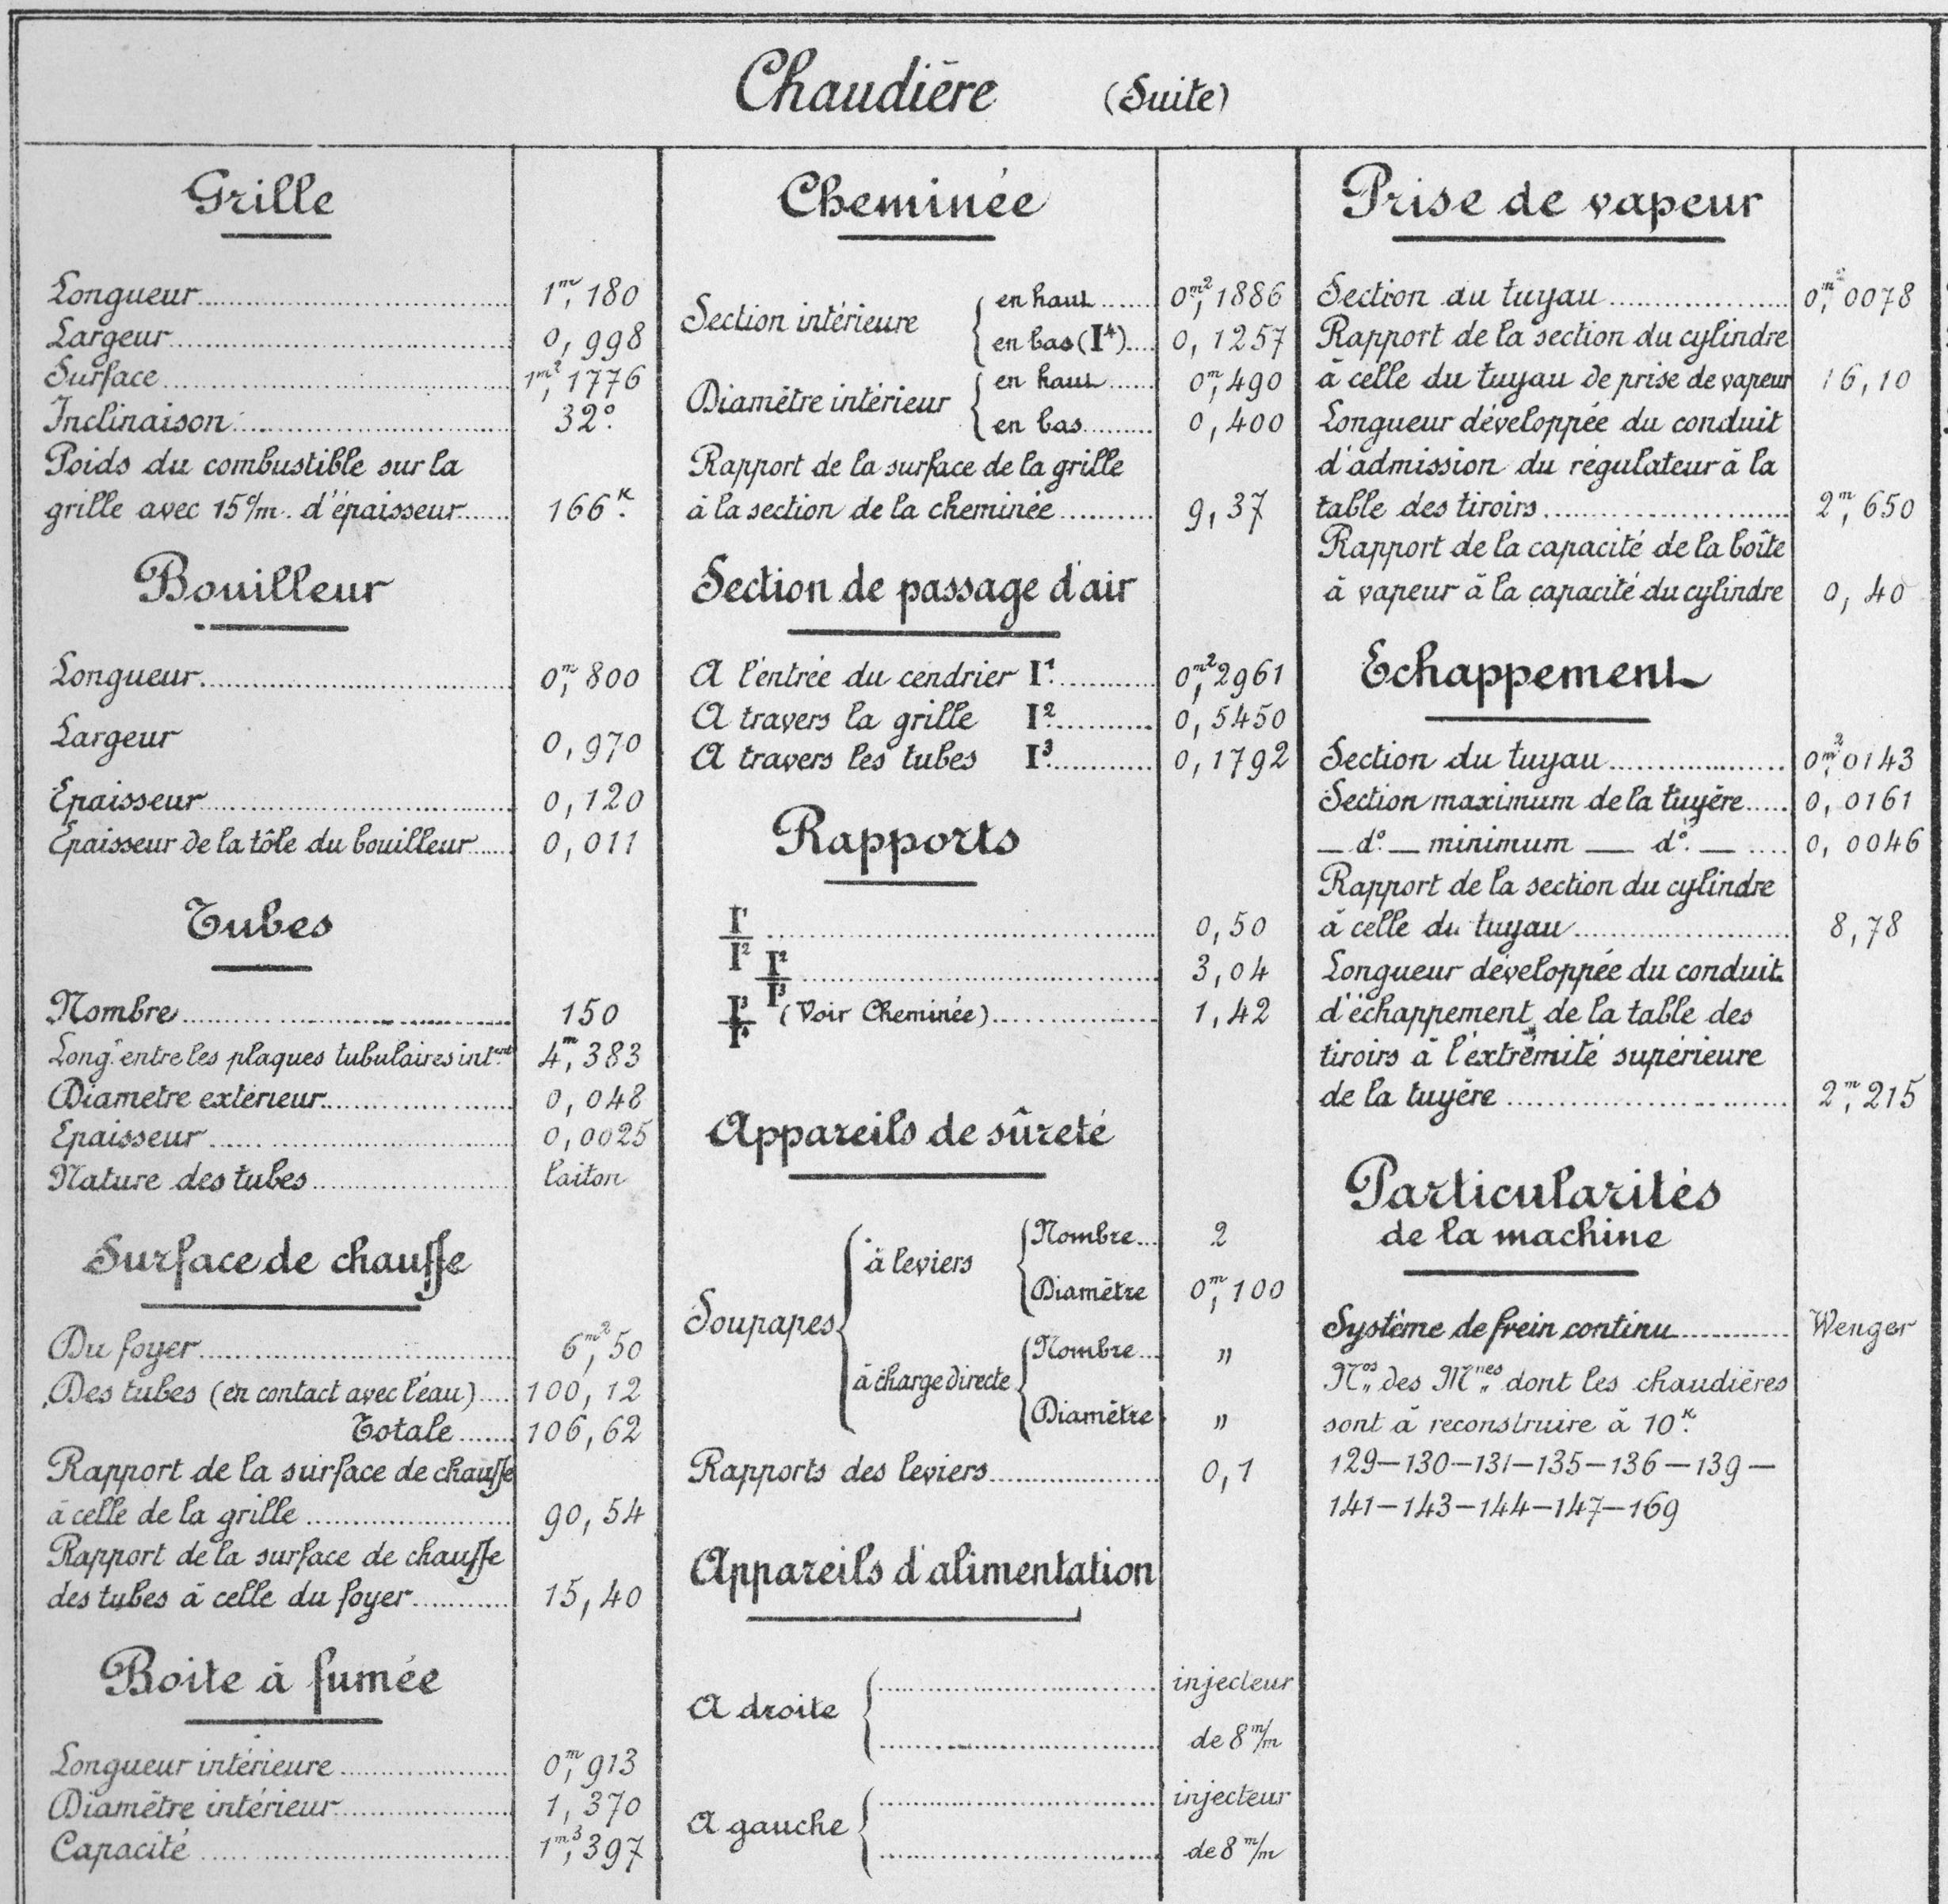 Chaudière (Suite)
Grille
Longueur 1m,180
Largeur 0,998
Surface 1m²,1776
Inclinaison 32°.
Poids du combustible sur la
grille avec 15c/m. d'épaisseur 166K.
Bouilleur
Longueur 0m,800
Largeur 0,970
Epaisseur 0,120
Epaisseur de la tôle du bouilleur 0,011
Tubes
Nombre 150
Longr. entre les plaques tubulaires intent. 4m,383
Diametre exterieur 0,048
Epaisseur 0,0025
Nature des tubes laiton
Surface de chauffe
Du foyer 6m²,50
Des tubes (en contact avec l'eau) 100,12
Totale 106,62
Rapport de la surface de chauffe
à celle de la grille 90,54
Rapport de la surface de chauffe
des tubes à celle du foyer 15,40
Boite à fumée
Longueur intérieure 0m,913
Diamètre intérieur 1,370
Capacité 1m³,397
Cheminée
Section intérieure { en haut 0m²,1886
en bas (I⁴) 0,1257
Diamètre intérieur { en haut 0m,490
en bas 0,400
Rapport de la surface de la grille
à la section de la cheminée 9,37
Section de passage d'air
A l'entrée du cendrier I¹. 0m²,2961
A travers la grille I². 0,5450
A travers les tubes I³. 0,1792
Rapports
I¹/I² 0,50
I²/I³ 3,04
I³/I⁴ (Voir Cheminée) 1,42
Appareils de sûreté
Soupapes { à leviers { Nombre 2
Diamètre 0m,100
à charge directe { Nombre "
Diamètre "
Rapports des leviers 0,1
Appareils d'alimentation
A droite { injecteur
de 8 m/m
A gauche { injecteur
de 8 m/m
Prise de vapeur
Section du tuyau 0m²,0078
Rapport de la section du cylindre
à celle du tuyau de prise de vapeur 16,10
Longueur développée du conduit
d'admission du régulateur à la
table des tiroirs 2m,650
Rapport de la capacité de la boîte
à vapeur à la capacité du cylindre 0,40
Echappement
Section du tuyau 0m²,0143
Section maximum de la tuyère 0,0161
— d°. — minimum — d°. — 0,0046
Rapport de la section du cylindre
à celle du tuyau 8,78
Longueur développée du conduit
d'échappement de la table des
tiroirs à l'extrêmité supérieure
de la tuyère 2m,215
Particularités
de la machine
Système de frein continu Wenger
Nos. des Mnes. dont les chaudières
sont à reconstruire à 10K.
129—130—131—135—136—139—
141—143—144—147—169